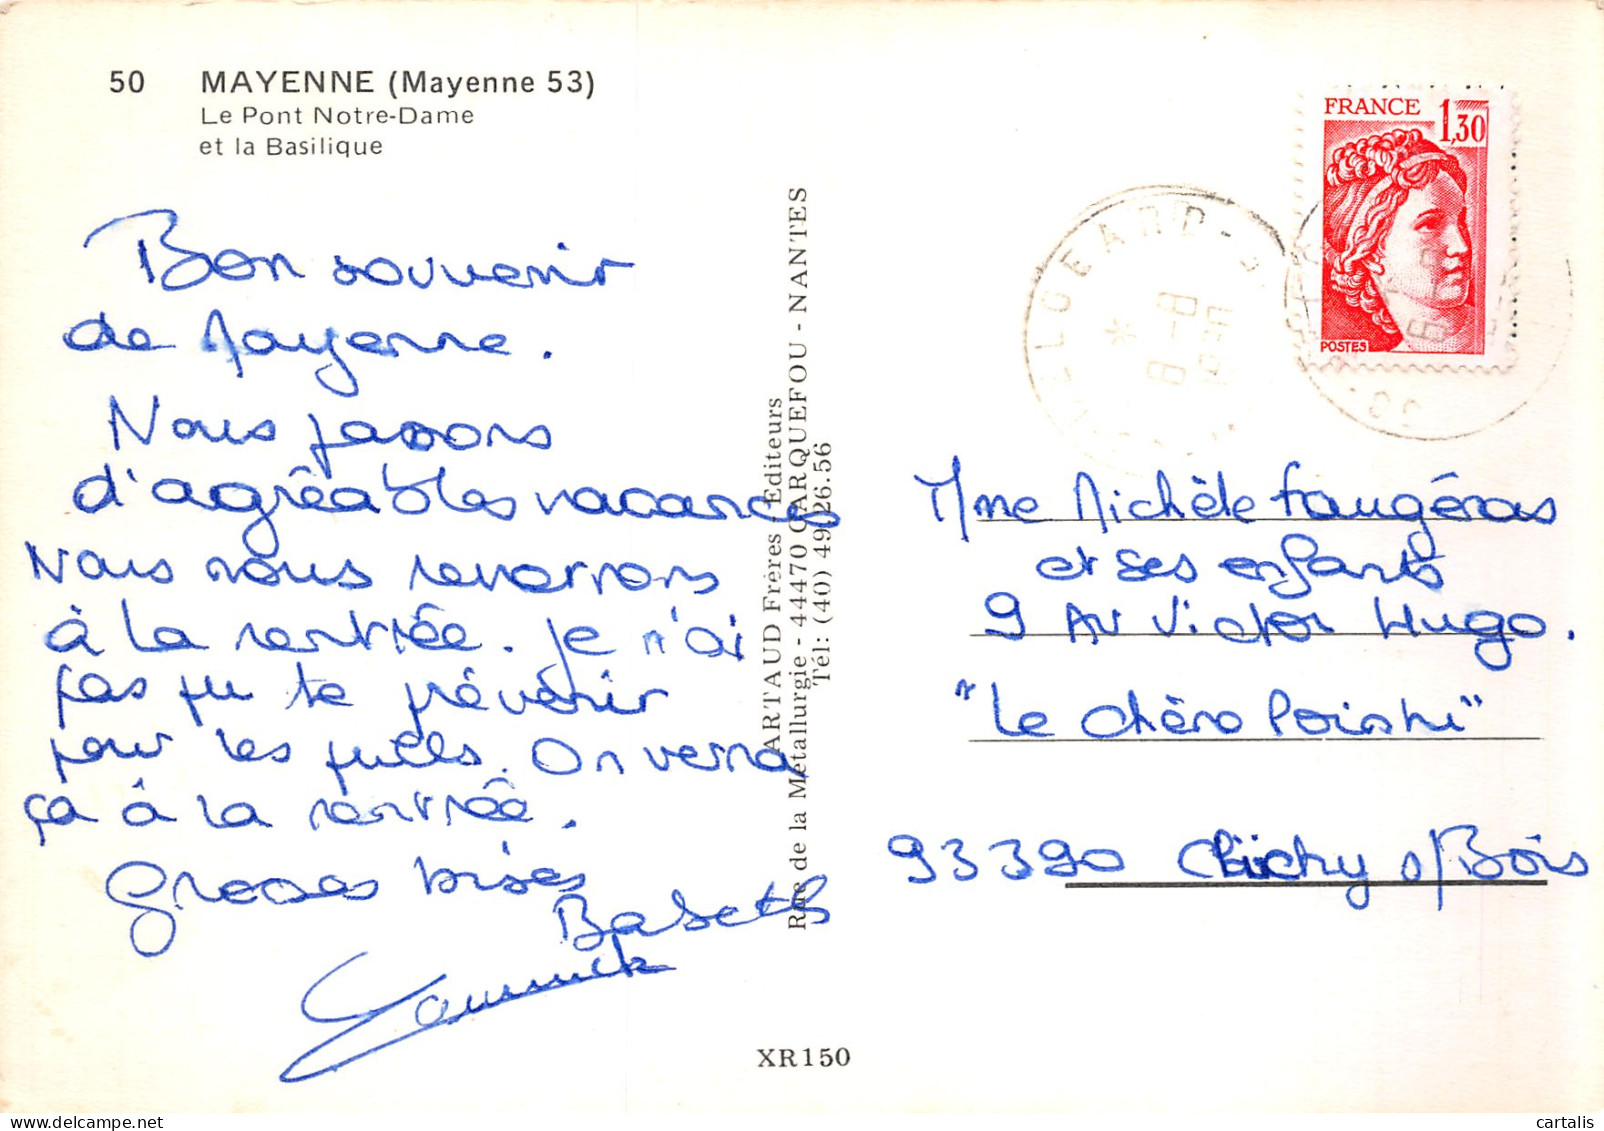 50 MAYENNE (Mayenne 53)
Le Pont Notre-Dame
et la Basilique
Bon souvenir
de Mayenne.
Nous passons
d'agréables vacances
Nous nous reverrons
à la rentrée. Je n'ai
pas pu te prévenir
pour les pulls. On verra
ça à la rentrée.
Grosses bises
Babeth
Yannick
ARTAUD Frères Editeurs
Rue de la Métallurgie - 44470 CARQUEFOU - NANTES
Tél: (40) 49.26.56
XR150
FRANCE 1,30
POSTES
8-8
Mme Michèle Faugéras
et ses enfants
9 Av Victor Hugo.
"Le Chêne Pointu"
93390 Clichy s/Bois
cartalis
www.delcampe.net